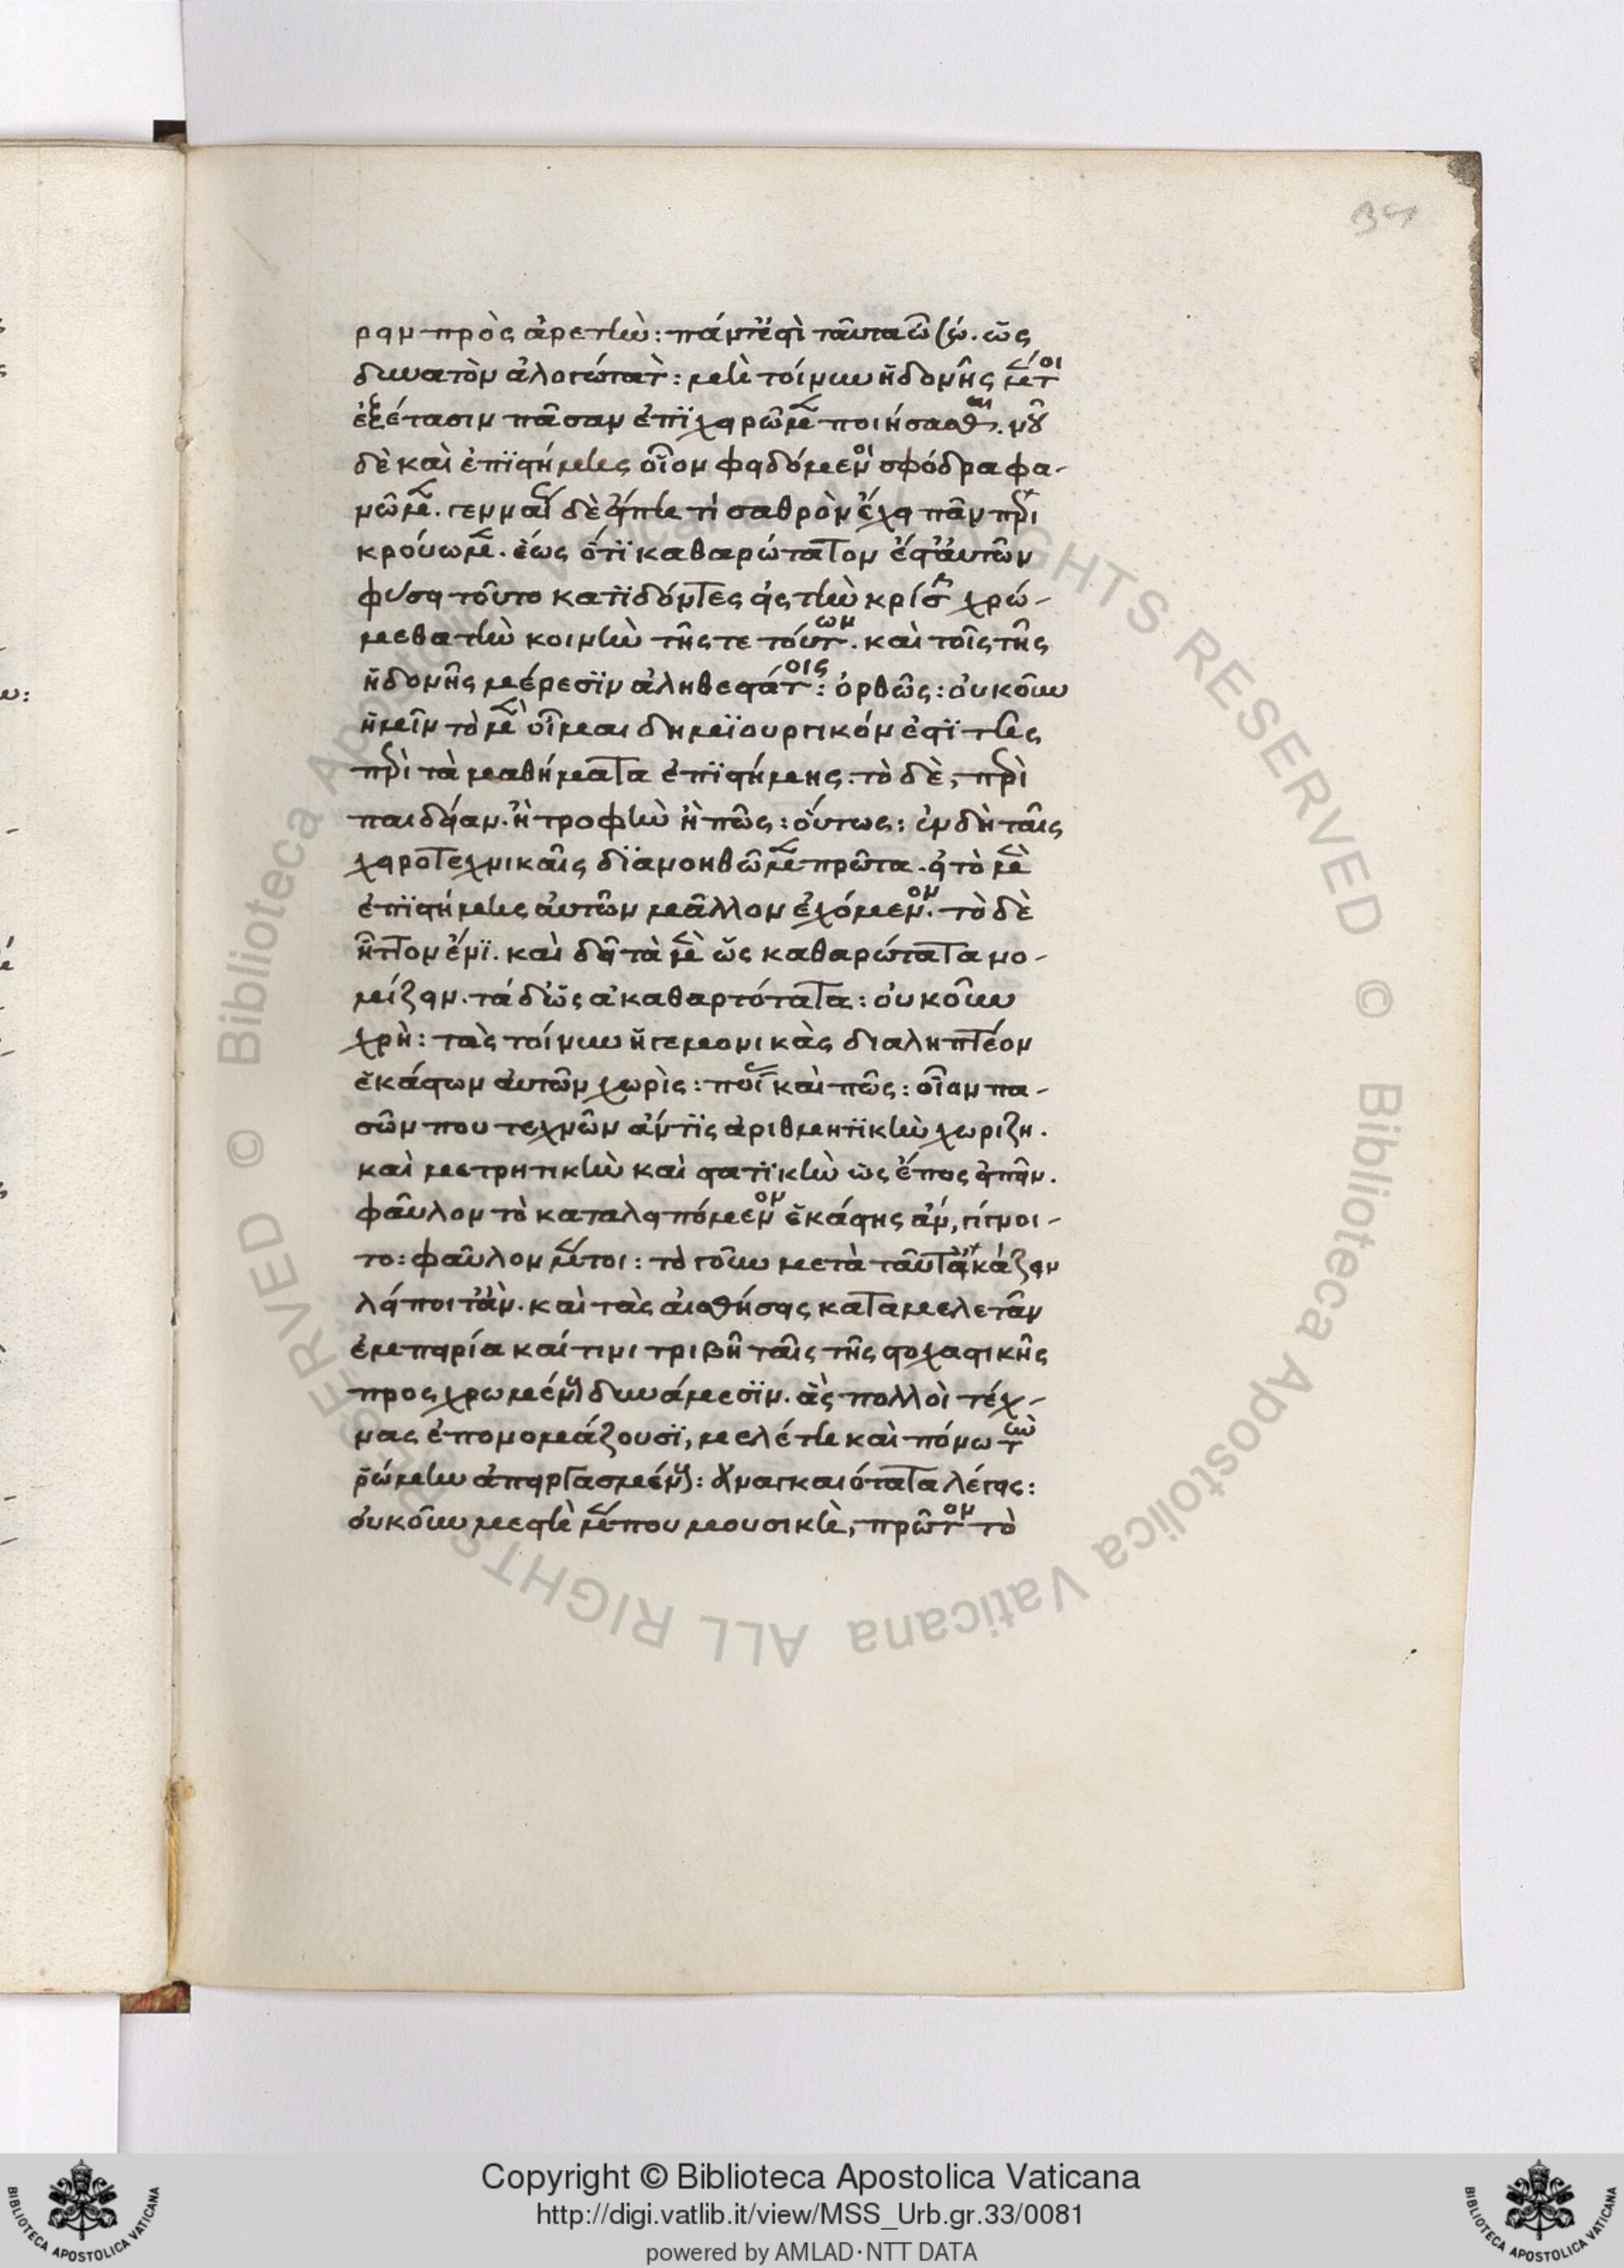 ρειν πρὸς ἀρετὴν: πάντ' ἐστὶ ταῦτα ὦ Σώ. ὡς
δυνατὸν ἀλογώτατ: μὴ τοίνυν ἡδονῆς μέντοι
ἐξέτασιν πᾶσαν ἐπϊχειρῶμεν ποιήσασθαι. νοῦ
δὲ καὶ ἐπϊστήμης οἷον φειδόμενοι σφόδρα φα-
νῶμεν. γενναίως δὲ εἴπη τί σαθρὸν ἔχει πᾶν περι
κρούωμεν. ἕως ὅτϊ καθαρώτατον ἔστ' αὐτῶν
φύσει τοῦτο κατϊδόντες εἰς τὴν κρίσιν χρώ-
μεθα τὴν κοινὴν τῆς τε τούτων. καὶ τοῖς τῆς
ἡδονῆς μέρεσϊν ἀληθεστάτοις: ὀρθῶς: οὐκοῦν
ἡμῖν τὸ μὲν οἶμαι δημϊουργικόν ἐστϊ τῆς
περὶ τὰ μαθήματα ἐπϊστήμης. τὸ δὲ, περὶ
παιδείαν. ἢ τροφὴν ἢ πῶς: οὕτως: ἐν δὴ ταῖς
χειροτεχνικαῖς δϊανοηθῶμεν πρῶτα. εἰ τὸ μὲν
ἐπϊστήμης αὐτῶν μᾶλλον ἐχόμενον. τὸ δὲ
ἧττον ἔνϊ. καὶ δεῖ τὰ μὲν ὡς καθαρώτατα νο-
μίζειν. τά δ' ὡς ἀκαθαρτότατα: οὐκοῦν
χρὴ: τὰς τοίνυν ἡγεμονικὰς διαληπτέον
ἑκάστων αὐτῶν χωρὶς: ποίας καὶ πῶς: οἷον πα-
σῶν που τεχνῶν ἄν τϊς ἀριθμητϊκὴν χωρίζη.
καὶ μετρητικὴν καὶ στατϊκὴν ὡς ἔπος εἰπεῖν.
φαῦλον τὸ καταλειπόμενον ἑκάστης ἄν, γίγνοι-
το: φαῦλον μέντοι: τὸ γοῦν μετὰ ταῦτα εἰκάζειν
λείποιτ' ἂν. καὶ τὰς αἰσθήσεις καταμελετᾶν
ἐμπειρία καί τινι τριβῇ ταῖς τῆς στοχαστικῆς
προςχρωμένους δυνάμεσϊν. ἃς πολλοὶ τέχ-
νας ἐπονομάζουσϊ, μελέτη καὶ πόνω τὴν
ῥώμην ἀπειργασμένας: ἀναγκαιότατα λέγεις:
οὐκοῦν μεστὴ μέν που μουσικὴ, πρῶτον τὸ
© Biblioteca Apostolica Vaticana ALL RIGHTS RESERVED
© Biblioteca Apostolica Vaticana ALL RIGHTS RESERVED
Copyright © Biblioteca Apostolica Vaticana
http://digi.vatlib.it/view/MSS_Urb.gr.33/0081
powered by AMLAD·NTT DATA
BIBLIOTECA APOSTOLICA VATICANA
BIBLIOTECA APOSTOLICA VATICANA